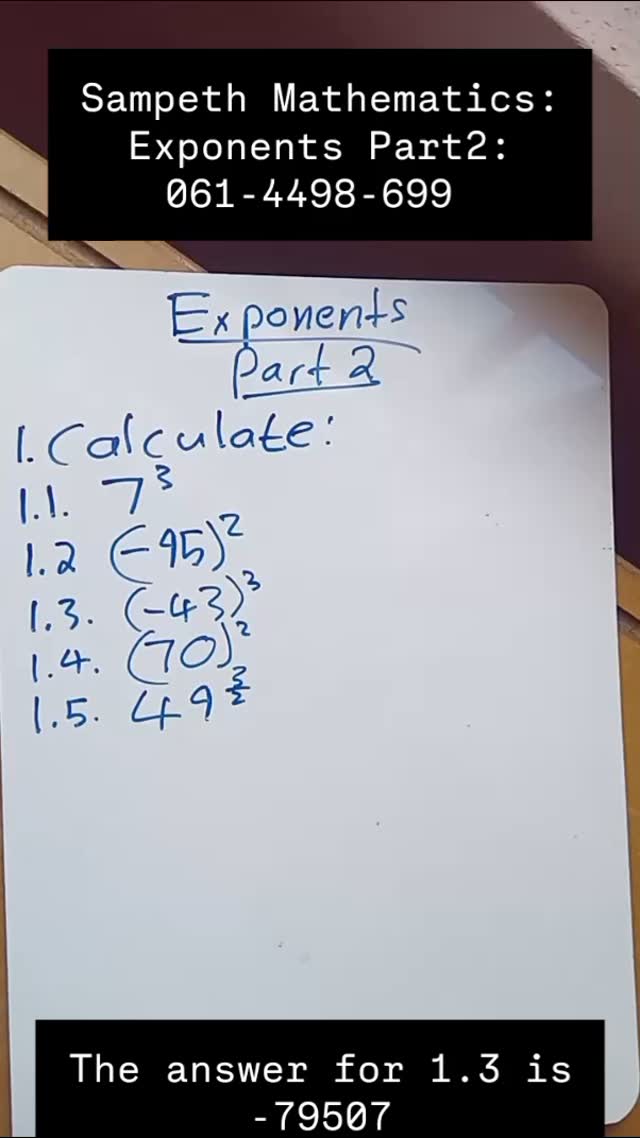 Sampeth Mathematics:
Exponents Part2:
061-4498-699
Exponents
Part 2
1. Calculate:
1.1. 7³
1.2 (-95)²
1.3. (-43)³
1.4. (70)²
1.5. 49^(3/2)
The answer for 1.3 is
-79507